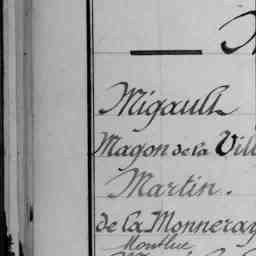 Migault
Magon de la Vill
Martin.
de la Monneray
Montluc